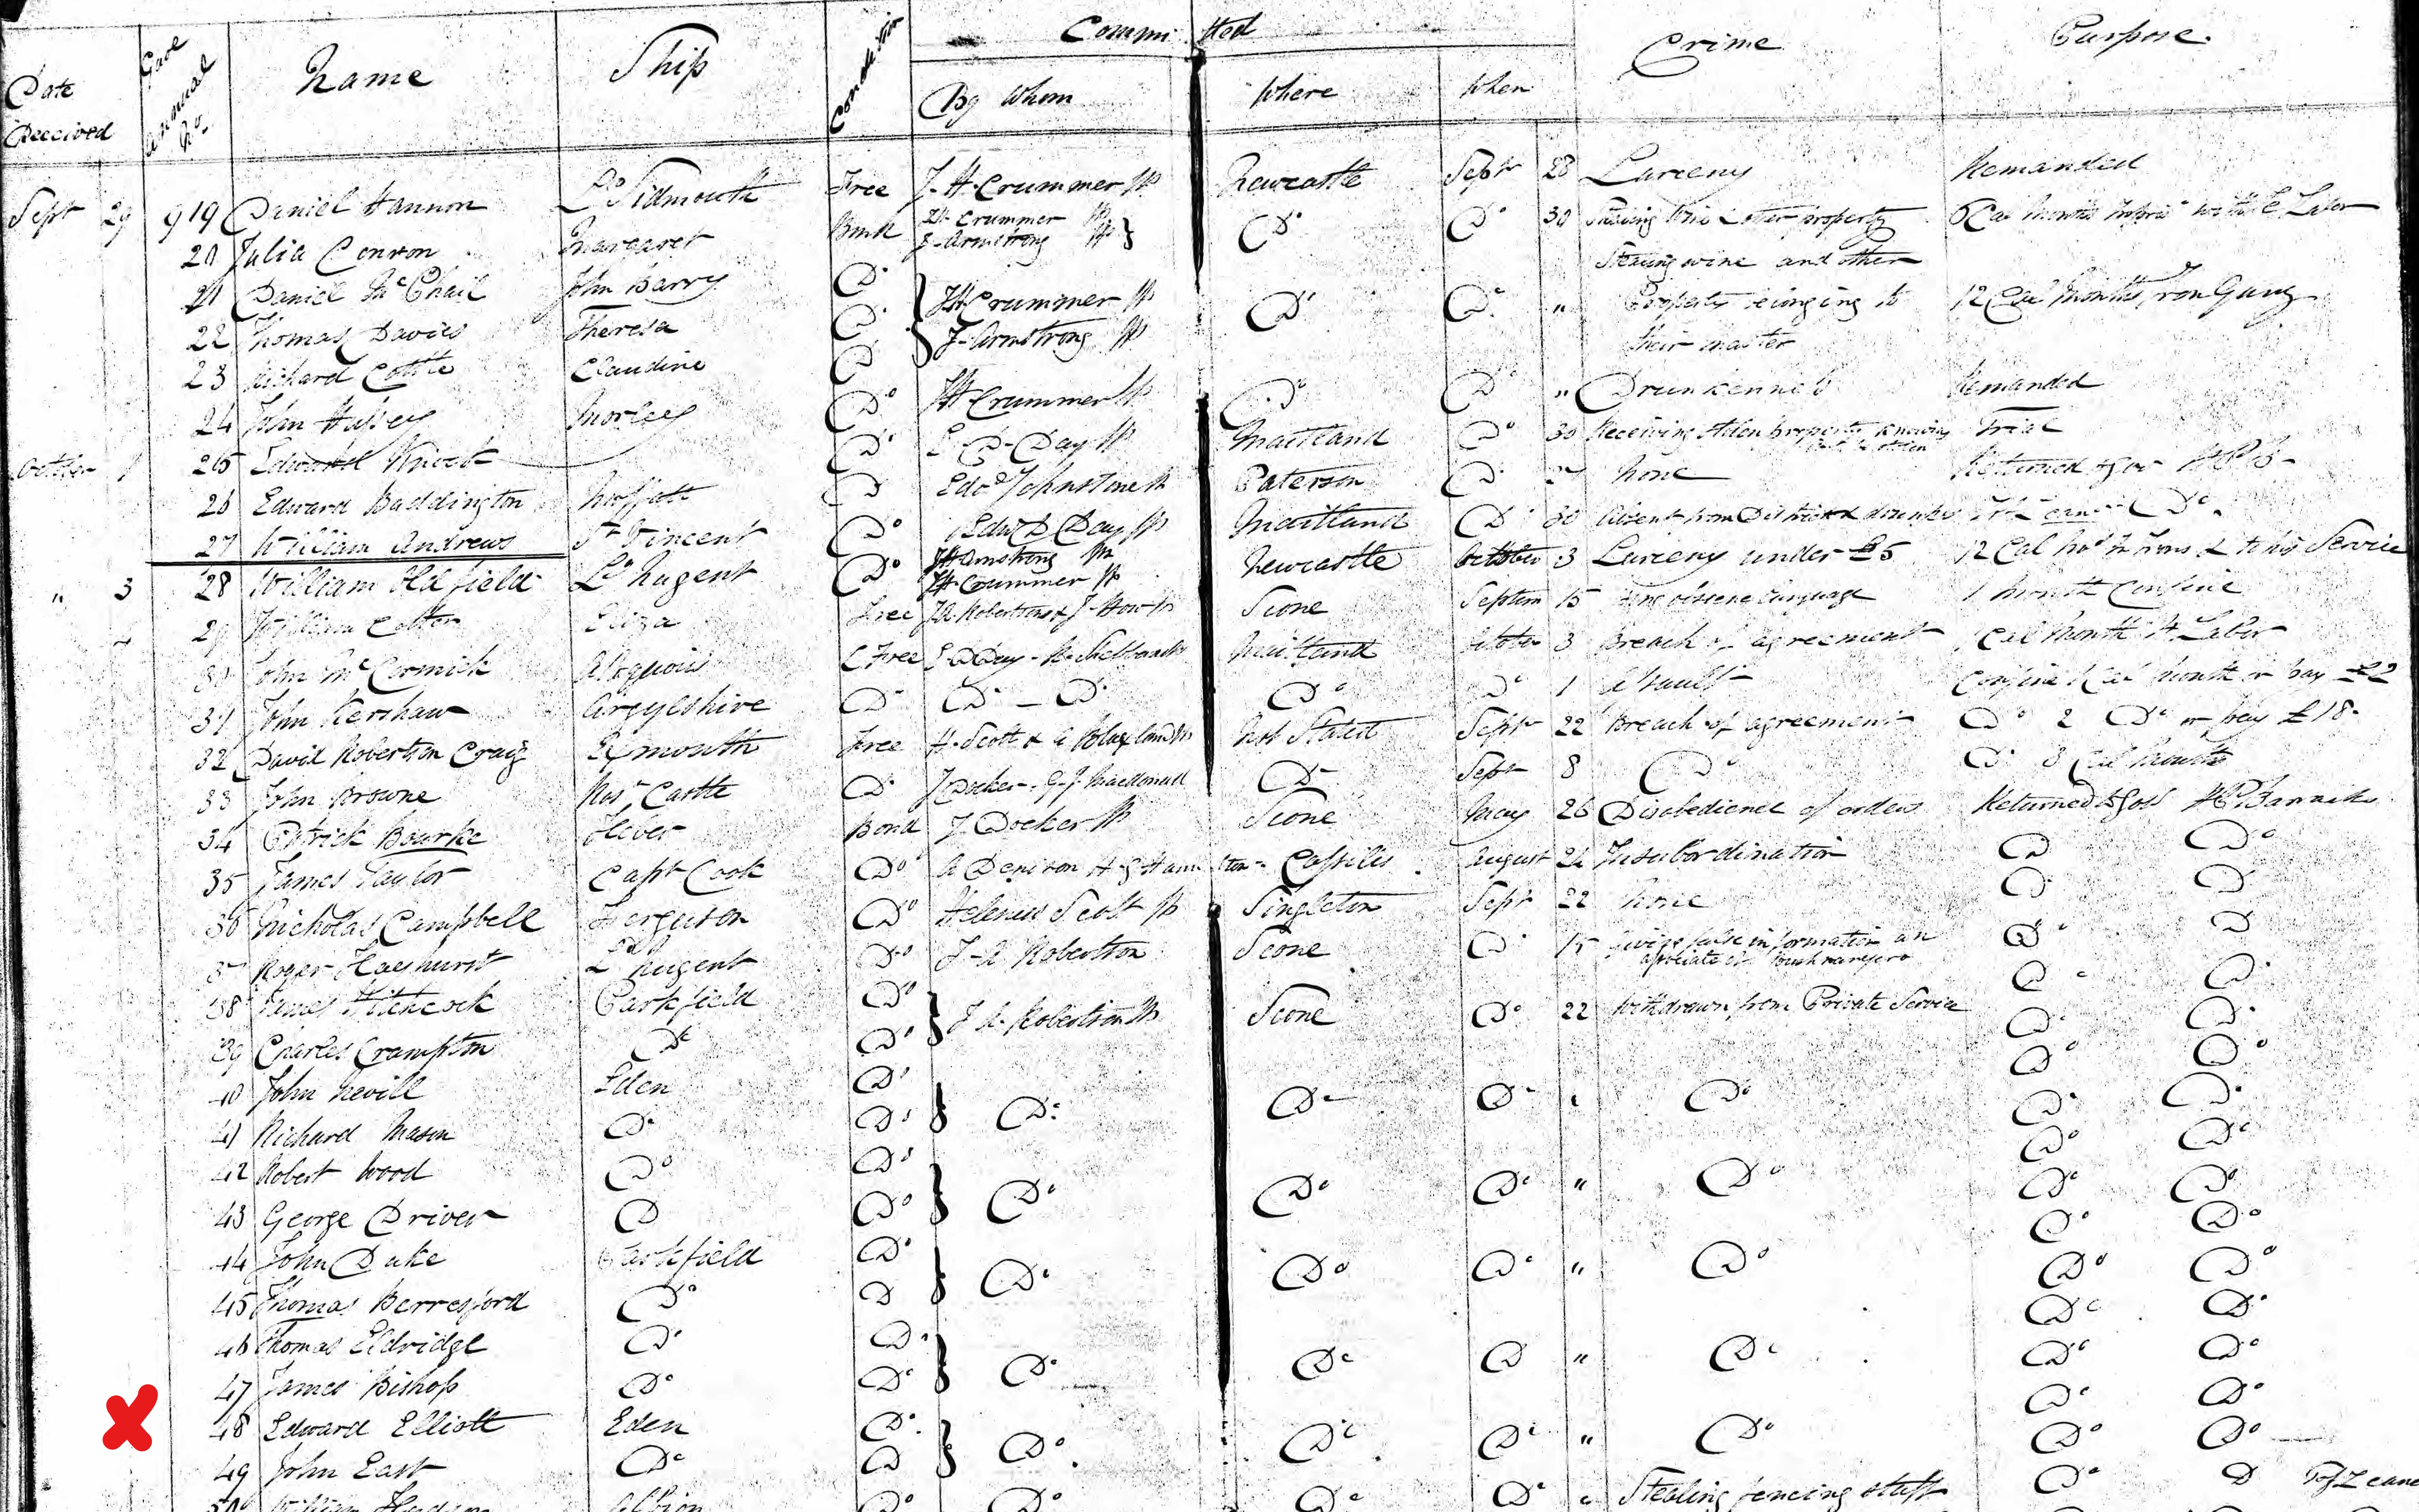 Date Received Gaol Annual No. Name Ship Condition Committed Crime Purpose.
By Whom Where When
Sept 29 919 Daniel Hannon Ld Sidmouth Free J. H. Crummer JP Newcastle Sept 28 Larceny Remanded
20 Julia Conron Margaret Bond JH Crummer JP J. Armstrong JP } Do Do 30 Stealing and other property 6 Cal Months Labor
21 Daniel McPhail John Barry Do } JH Crummer JP Do Do " Stealing wine and other Property belonging to their master 12 Cal Months Iron Gang
22 Thomas Davies Theresa Do J. Armstrong JP
23 Richard Cottle Claudine Do
24 John Hussey Morley Do JH Crummer JP Do Do " Drunkenness Remanded
October 1 25 Edward Do E. D. Day JP Maitland Do 30 Receiving stolen property knowing Trial
26 Edward Baddington Moffatt Do Edwd Johnstone JP Paterson Do 27 None Returned to Govt H P B
27 William Andrews St Vincent Do Edwd D Day JP Maitland Do 30 Absent from District & drunk Do.
" 3 28 William Oldfield Ld Nugent Do J Armstrong JP JH Crummer JP Newcastle October 3 Larceny under £5 12 Cal Mos In Irons & to his Service
29 William Cotter Eliza Free JA Robertson & J. How JP Scone Septem 15 obscene language 1 Month Confine
30 John McCormick Free E D Day - Maitland October 3 Breach of agreement Cal Month H. Labor
31 John Kershaw Argyleshire Do Do - Do Do Do 1 Assault Confine 1 Cal Month or pay £2
32 David Robertson Craig Exmouth Free H. Scott & G Blaxland JP Not Stated Sept 22 Breach of agreement Do 2 Do or pay £18-
33 John Browne Rosn Castle Do J Docker - G. J. Macdonald Do Sept 8 Do Do 3 Cal Months
34 Patrick Bourke Heber Bond J Docker JP Scone May 26 Disobedience of orders Returned to Govt H P Barracks
35 James Taylor Capt Cook Do A Denison H. G Hamilton - Cassilis August 24 Insubordination Do Do
36 Nicholas Campbell Ferguson Do Helenus Scott JP Singleton Sept 22 None Do Do
37 Roger Ld Nugent Do J. A Robertson Scone Do 15 Giving false information an associate of bushrangers Do Do
38 James Hitchcock Parkfield Do } J A. Robertson JP Scone Do 22 Withdrawn from Private Service Do Do
39 Charles Crampton Do Do Do Do
40 John Nevill Eden Do } Do Do Do " Do Do Do
41 Richard Mason Do Do Do Do
42 Robert Wood Do Do } Do Do Do " Do Do Do
43 George Driver Do Do Do Do
44 John Duke Parkfield Do } Do Do Do " Do Do Do
45 Thomas Berresford Do Do Do Do
46 Thomas Eldridge Do Do } Do Do Do " Do Do Do
47 James Bishop Do Do Do Do
48 Edward Elliott Eden Do } Do Do Do " Do Do Do
49 John East Do Do Do Do
50 William Albion Do Do Do Do " Stealing fencing stuff Do Do